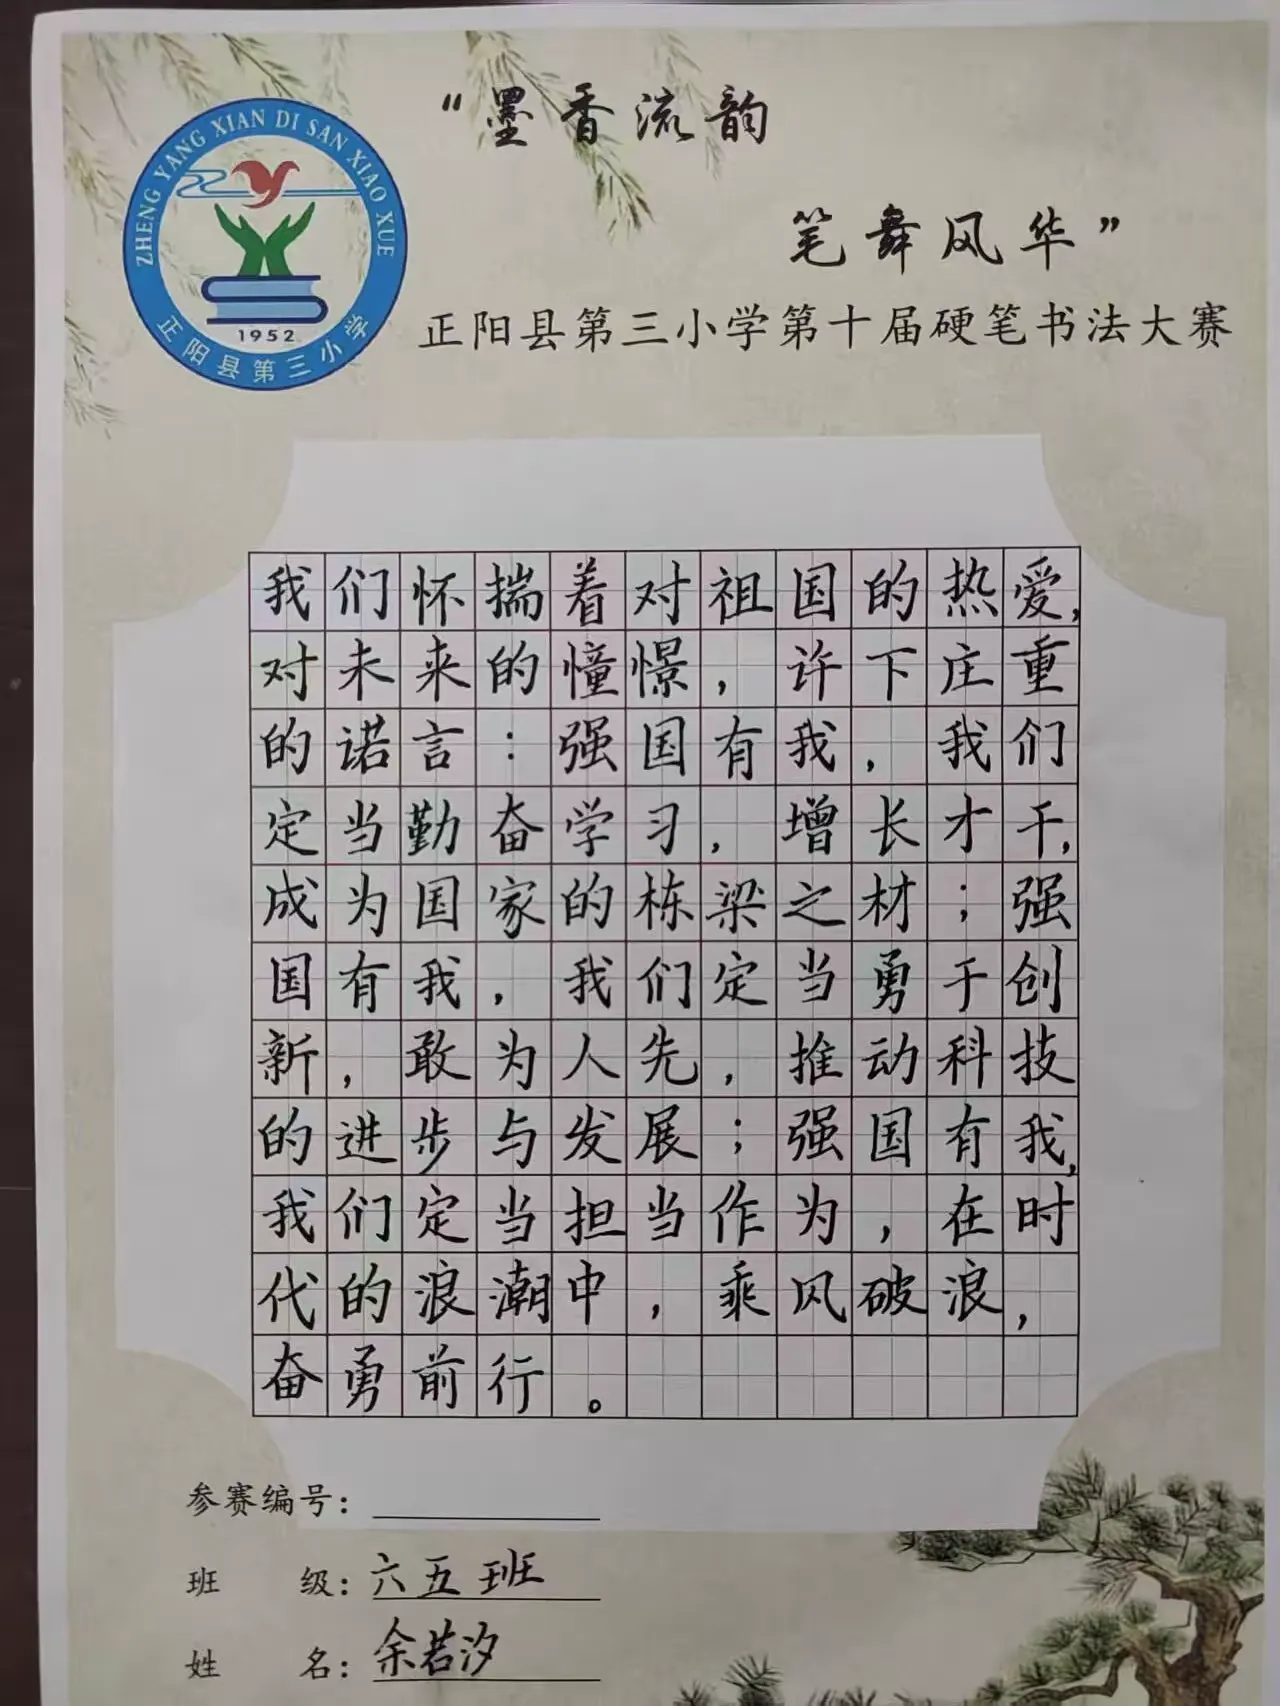 "墨香流韵
笔舞风华"
ZHENG YANG XIAN DI SAN XIAO XUE
1952
正阳县第三小学
正阳县第三小学第十届硬笔书法大赛
我们怀揣着对祖国的热爱,
对未来的憧憬,许下庄重
的诺言:强国有我,我们
定当勤奋学习,增长才干,
成为国家的栋梁之材;强
国有我,我们定当勇于创
新,敢为人先,推动科技
的进步与发展;强国有我,
我们定当担当作为,在时
代的浪潮中,乘风破浪,
奋勇前行。
参赛编号:
班级:六五班
姓名:余若汐